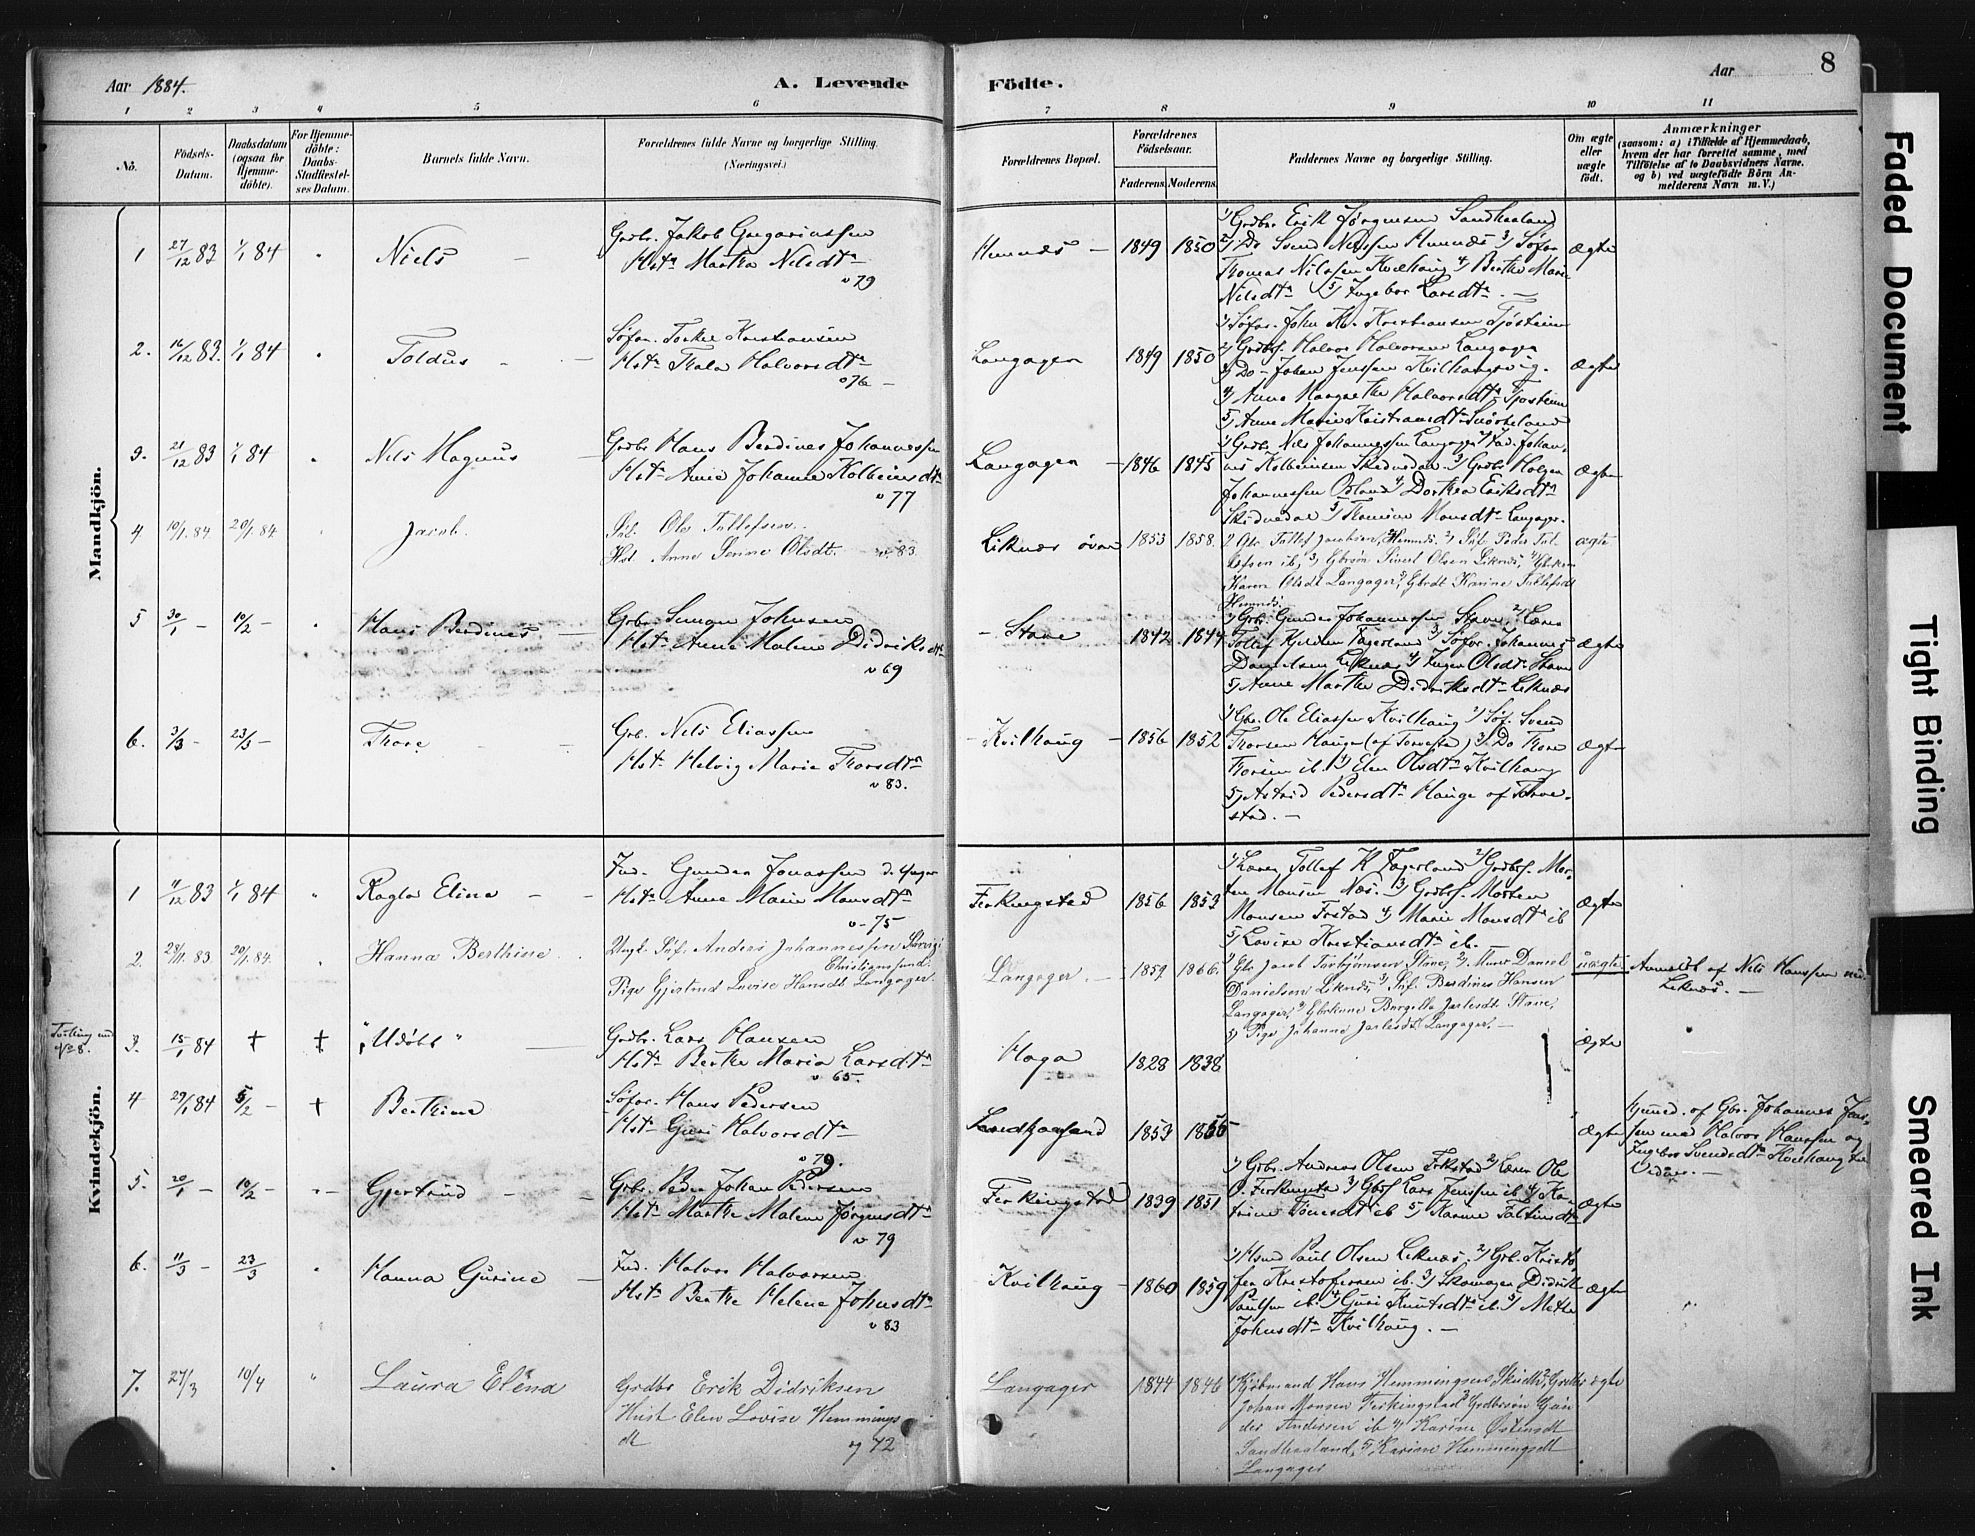 Aar 1884.
A. Levende
Födte.
Aar
8
1 2 3 4 5 6 7 8 9 10 11
No.
Födsels-Datum.
Daabsdatum (ogsaa for Hjemme-döbte).
For Hjemme-döbte: Daabs-Stadfæstel-ses Datum.
Barnets fulde Navn.
Forældrenes fulde Navne og borgerlige Stilling.
(Næringsvei.)
Forældrenes Bopæl.
Forældrenes Födselsaar.
Faderens. Moderens.
Faddernes Navne og borgerlige Stilling.
Om ægte eller uægte födt.
Anmærkninger
(saasom: a) i Tilfælde af Hjemmedaab,
hvem der har forrettet samme, med
Tilföielse af to Daabsvidners Navne.
og b) ved uægtefödte Börn An-
melderens Navn m. V.)
Mandkjön.
1 27/12 83 1/1 84 Niels
Grdbr. Jakob Gregoriussen
Hst. Martha Nilsdtr
v 79
Hemnæs 1849 1850
1) Grdbr Erik Jørgensen Sandhaaland
2) Do Svend Nilssen Hemnæs 3) Söfar
Thomas Nilssen Kvilhaug 4) Berthe Marie
Nilsdtr 5) Ingebor Larsdtr
Ægte
2. 16/12 83. 1/1 84 Toldus
Söfar. Torkel Kristiansen
Hst. Thala Halvorsdtr
v 76
Langager 1849 1850
1) Söfar. John Kr. Kristiansen Tjöstheim
2) Grdbs. Halvor Halvorsen Langager
3) Do Johan Jenssen Kvilhaugsvig.
4) Anne Margrethe Halvorsdtr Tjostheim
5) Anne Marie Kristiansdtr
Ægte
3. 21/12 83 1/1 84 Nils Magnus
Grdbr Hans Berdines Johannessen
Hst. Anne Johanne Kolbeinsdtr
v 77
Langager 1846 1845
1) Grdbr Nils Johannessen Langager 2) Johan-
nes Kolbeinsen Skeduedal 3) Grdbr Holger
Johannessen Osland 4) Dorthea Eriksdtr
Skeduedal 5) Monsdtr Langager
Ægte
4 10/1. 84. 20/1. 84 Jacob.
Ole Tollefsen
Hst. Anne Serine Olsdt. v. 83.
Liknæs övre 1853 1858.
1) Gbr. Tollef Jacobsen, Hemnæs. 2) Söf. Peder Tol-
lefsen ib, 3) Gbrsön Sivert Olsen Liknæs,
Karen Olsdt Langager, 5) Gbrdt Karine Tollefsdt
Hemnæs.
ægte
5 30/1 10/2 Hans Berdines
Grbr. Simon Johnsen
Hst. Anne Malene Didriksdtr
v 69
Stave 1842 1844
1) Grb. Gunder Johannessen Stave, 2) Lærer
Tollef Kjelden Fagerland 3) Söfar. Johannes
Danielsen Liknæs 4) Inger Olsdt. Stave
5) Anne Marthe Didriksdtr Liknæs
Ægte
6. 3/3 23/3 Thore
Grb. Nils Eliassen
Hst. Helvig Marie Thorsdtr
v 83.
Kvilhaug 1856 1852
1) Gbr. Ole Eliassen Kvilhaug 2) Söf. Svend
Thorsen Hauge (af Torvesta) 3) Do Thore
Thorsen ib. 4) Elen Olsdtr Kvilhaug
5) Astrid Pedersdtr Hauge af Torve-
stad.
Ægte
Kvindekjön.
1 11/12 83 1/1 84 Ragla Elina
Ind. Gunder Jonassen d. yngre
Hst. Anne Marie Monsdtr
v. 75
Ferkingstad 1856 1853
1) Lærer Tollef K Fagerland 2) Grdbsf. Mor-
ten Monsen Næs. 3) Grdbsf. Morten
Monsen 4) Marie Monsdtr ib
5) Lovise Kristiansdtr ib.
Ægte
2. 28/11. 83. 20/1. 84. Hanna Berthine
Ungk. Söf. Anders Johannessen
Christianssund.
Pige Gjertrud Lovise Hansdt. Langager.
Langager. 1859 1866.
1) Gbr Jacob Torbjørnsen Stave, 2) Daniel
Danielsen Liknæs, 3) Söf. Berdines Hansen
Langager, 4) Gbrkone Jarlesdt. Stave,
5) Pige Johanne Jarlesdt. Langager.
uægte
Anmeldt af Nils Hanssen
Liknæs.
3. 15/1 84 † † "Udöbt"
Grdbr. Lars Hansen
Hst. Berthe Maria Larsdtr
v 65.
Haga 1828 1838
Ægte
4 29/1 84 5/2 † Berthine
Söfar. Hans Pedersen
Hst. Guri Halvorsdtr
v 79.
Sandhaaland 1853 1855
Ægte
Hjemmed. af Gbr. Johannes Jens-
sen med Halvor Hanssen og
Ingebor Svendsdtr Kvilhaug til
Vidner.
5. 20/1 10/2 Gjertrud
Grbr. Peder Johan Pedersen
Hst. Marthe Malene Jörgensdtr
v 79
Ferkingstad 1839 1851
1) Grbr. Andreas Olsen 2) Lærer Ole
O. Ferkingsta 3) Gbsf Lars Jenssen ib 4) Ka-
trine Tönesdt ib 5) Karine
Ægte
6. 11/3 23/3 Hanna Gurine
Ind. Halvor Halvorsen
Hst. Berthe Helene Johnsdtr
v 83
Kvilhaug 1860 1859
1) Hsmd Paul Olsen Liknæs. 2) Grb. Kristo-
fer Kristofersen ib. 3) Skomager Didrik
Paulsen ib. 4) Guri Knutsdtr ib 5) Mette
Johnsdtr Kvilhaug.
Ægte
7. 27/3 10/4 Laura Elena
Grdbr Erik Didriksen
Hust Elen Lovise Hemmings
dt
v 72
Langager 1844 1846
1) Kjöbmand Hans Hemmingsen
Johan Monsen Ferkingstad 3) Grdbrsön Gun-
der Andersen ib 4) Karine Östensdt
Sandhaaland, 5) Karine Hemmingsdt
Langager
ægte
Faded Document
Tight Binding
Smeared Ink